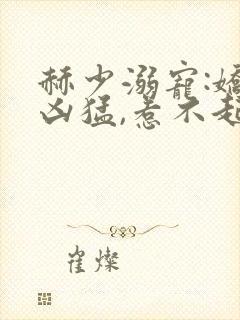 赫少溺寵:嬌
凶猛,惹不起
崔燦